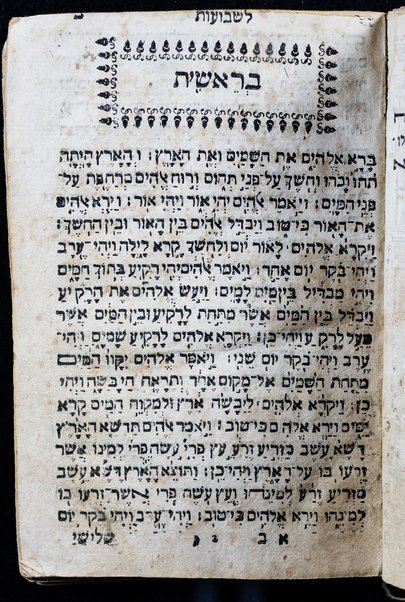 לשבועות
בראשית
בָּרָא אֱלֹהִים אֵת הַשָּׁמַיִם וְאֵת הָאָרֶץ: וְהָאָרֶץ הָיְתָה
תֹהוּ וָבֹהוּ וְחֹשֶׁךְ עַל־פְּנֵי תְהוֹם וְרוּחַ אֱלֹהִים מְרַחֶפֶת עַל־
פְּנֵי הַמָּיִם: וַיֹּאמֶר אֱלֹהִים יְהִי אוֹר וַיְהִי אוֹר: וַיַּרְא אֱלֹהִים
אֶת־הָאוֹר כִּי־טוֹב וַיַּבְדֵּל אֱלֹהִים בֵּין הָאוֹר וּבֵין הַחֹשֶׁךְ:
וַיִּקְרָא אֱלֹהִים לָאוֹר יוֹם וְלַחֹשֶׁךְ קָרָא לָיְלָה וַיְהִי־עֶרֶב
וַיְהִי־בֹקֶר יוֹם אֶחָד: וַיֹּאמֶר אֱלֹהִים יְהִי רָקִיעַ בְּתוֹךְ הַמָּיִם
וִיהִי מַבְדִּיל בֵּין מַיִם לָמָיִם: וַיַּעַשׂ אֱלֹהִים אֶת הָרָקִיעַ
וַיַּבְדֵּל בֵּין הַמַּיִם אֲשֶׁר מִתַּחַת לָרָקִיעַ וּבֵין הַמַּיִם אֲשֶׁר
מֵעַל לָרָקִיעַ וַיְהִי־כֵן: וַיִּקְרָא אֱלֹהִים לָרָקִיעַ שָׁמָיִם וַיְהִי
עֶרֶב וַיְהִי־בֹקֶר יוֹם שֵׁנִי: וַיֹּאמֶר אֱלֹהִים יִקָּווּ הַמַּיִם
מִתַּחַת הַשָּׁמַיִם אֶל־מָקוֹם אֶחָד וְתֵרָאֶה הַיַּבָּשָׁה וַיְהִי
כֵן: וַיִּקְרָא אֱלֹהִים לַיַּבָּשָׁה אֶרֶץ וּלְמִקְוֵה הַמַּיִם קָרָא
יַמִּים וַיַּרְא אֱלֹהִים כִּי־טוֹב: וַיֹּאמֶר אֱלֹהִים תַּדְשֵׁא הָאָרֶץ
דֶּשֶׁא עֵשֶׂב מַזְרִיעַ זֶרַע עֵץ פְּרִי עֹשֶׂה פְּרִי לְמִינוֹ אֲשֶׁר
זַרְעוֹ בוֹ עַל־הָאָרֶץ וַיְהִי־כֵן: וַתּוֹצֵא הָאָרֶץ דֶּשֶׁא עֵשֶׂב
מַזְרִיעַ זֶרַע לְמִינֵהוּ וְעֵץ עֹשֶׂה פְּרִי אֲשֶׁר זַרְעוֹ בוֹ
לְמִינֵהוּ וַיַּרְא אֱלֹהִים כִּי־טוֹב: וַיְהִי־עֶרֶב וַיְהִי־בֹקֶר יוֹם
א ב שלישי